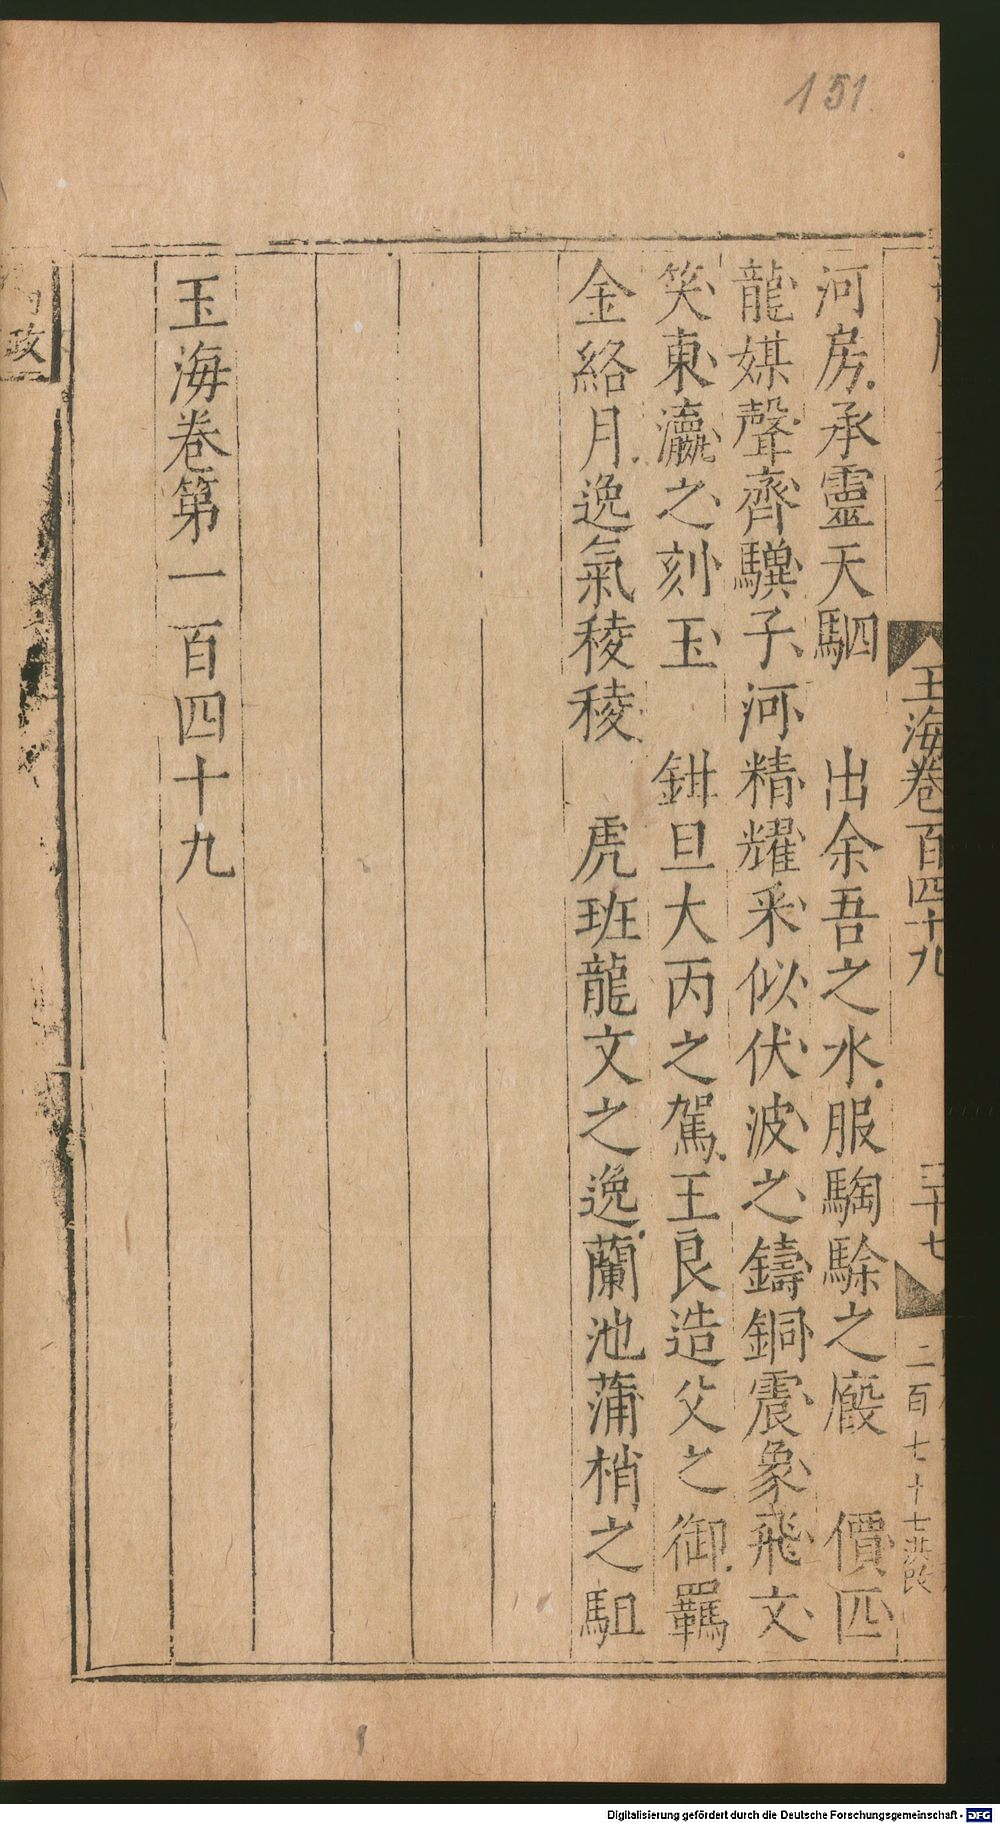 151.
玉海卷百四十九
三十七
二百七十七洪改
河房承靈天駟　出余吾之水服騊駼之廄　價匹
龍媒聲齊驥子河精耀采似伏波之鑄銅震象飛文
笑東瀛之刻玉　鉗旦大丙之駕王良造父之御羈
金絡月逸氣稜稜　虎班龍文之逸蘭池蒲梢之駔
玉海卷第一百四十九
政
Digitalisierung gefördert durch die Deutsche Forschungsgemeinschaft - DFG